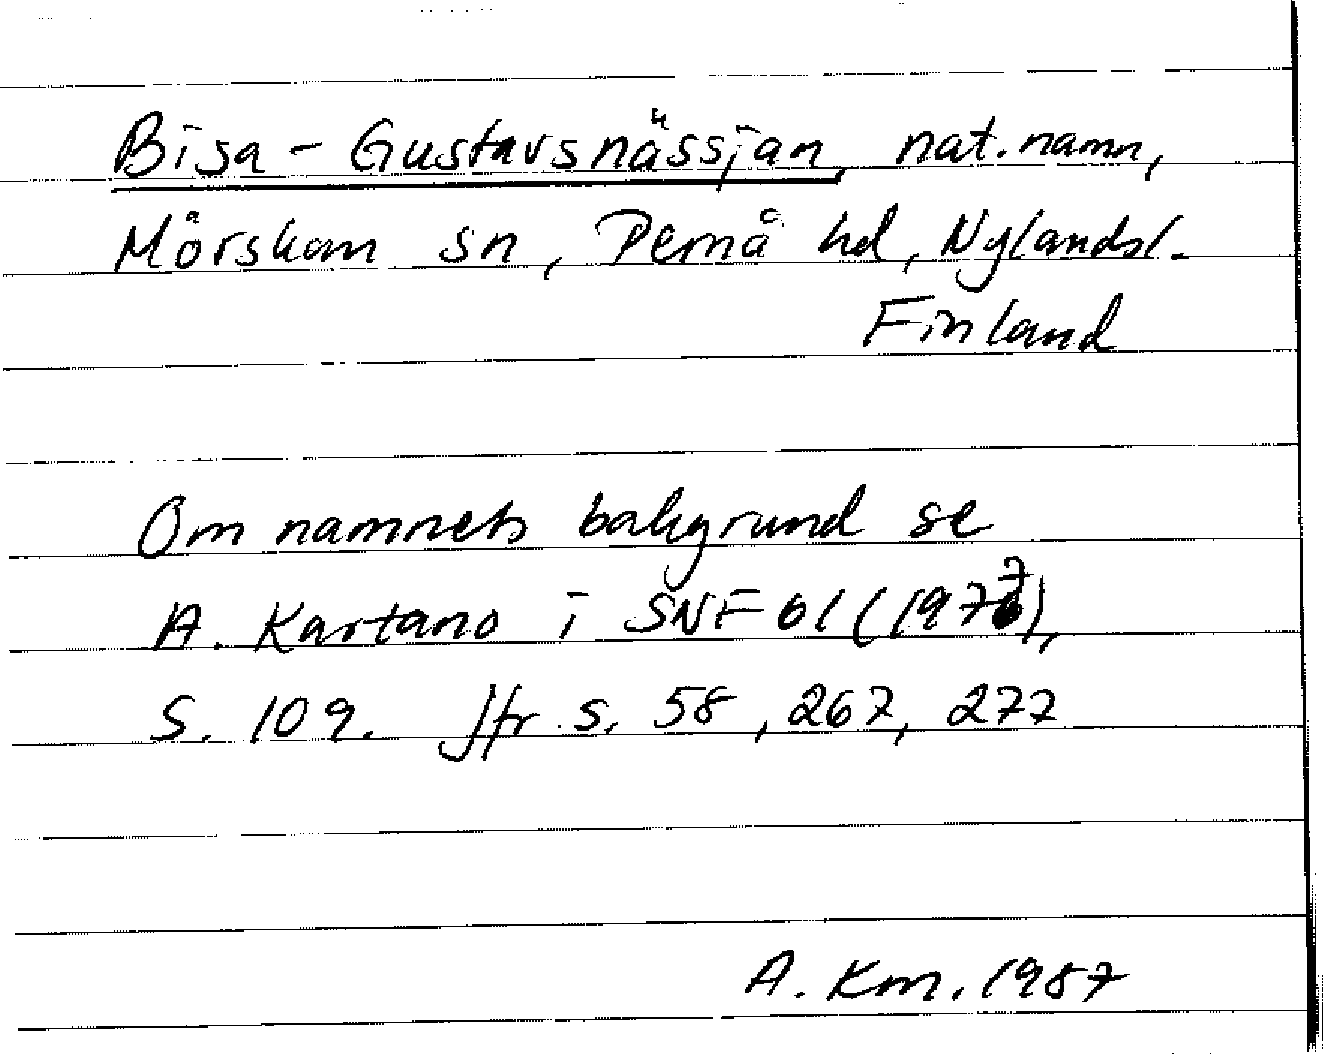 Bisa-Gustavsnässjan, nat.namn,
Mörskom sn, Pernå hd, Nylandsl.
Finland
Om namnets bakgrund se
A. Kartano i SNF 61 (1977),
S. 109. Jfr s. 58, 267, 277
A. Km. 1987